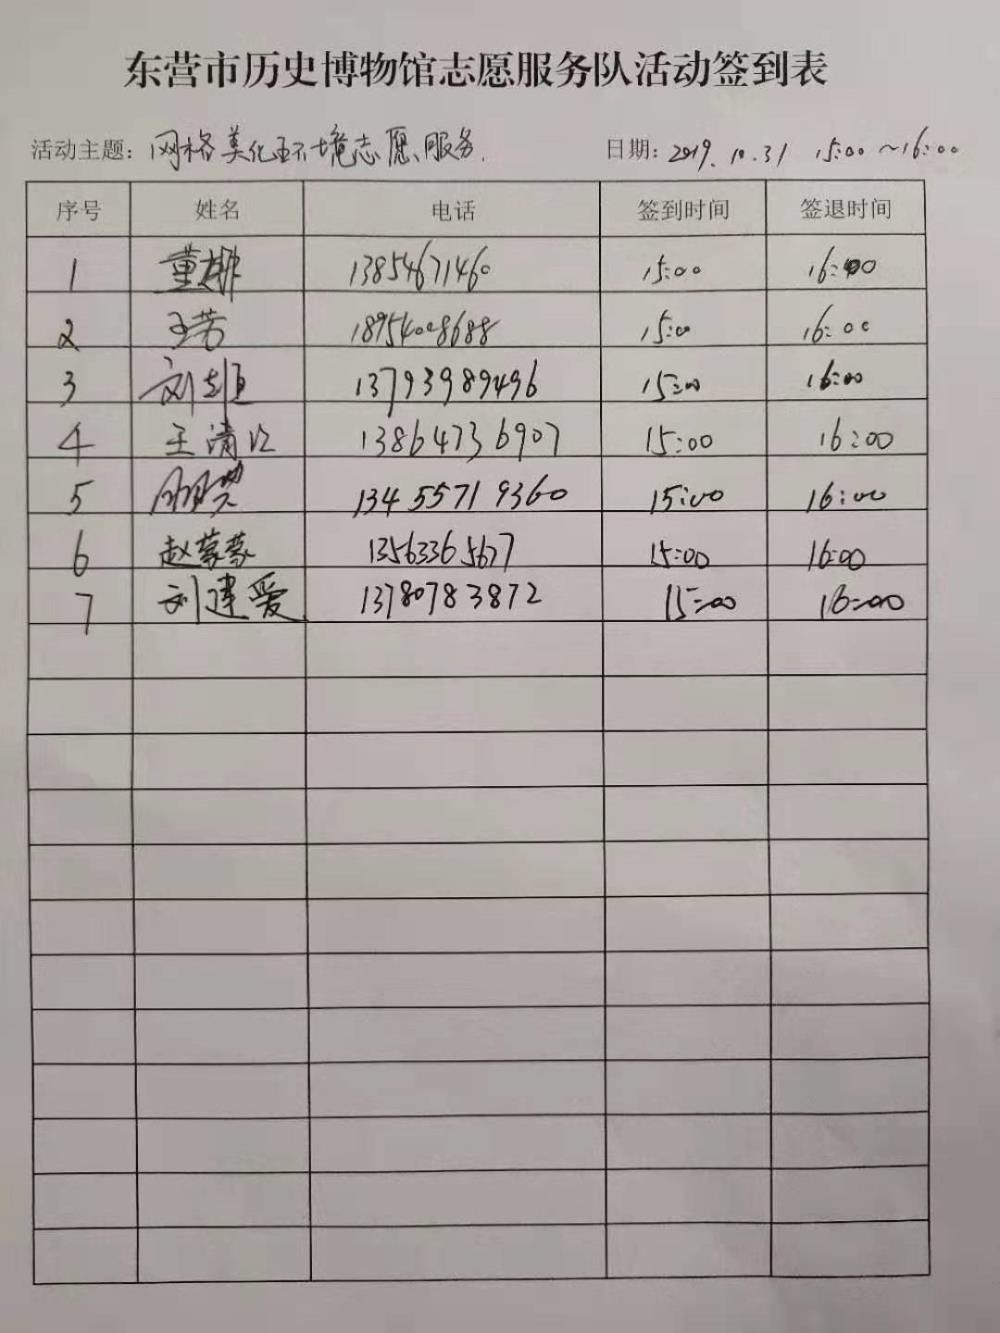 东营市历史博物馆志愿服务队活动签到表
活动主题：网格美化环境志愿服务. 日期：2019.10.31 15:00～16:00
序号 姓名 电话 签到时间 签退时间
1 董 13854671460 15:00 16:00
2 王芳 18954008688 15:00 16:00
3 刘 13793989496 15:00 16:00
4 王清 13864736907 15:00 16:00
5 13455719360 15:00 16:00
6 赵蒙蒙 13563365677 15:00 16:00
7 刘建爱 13780783872 15:00 16:00